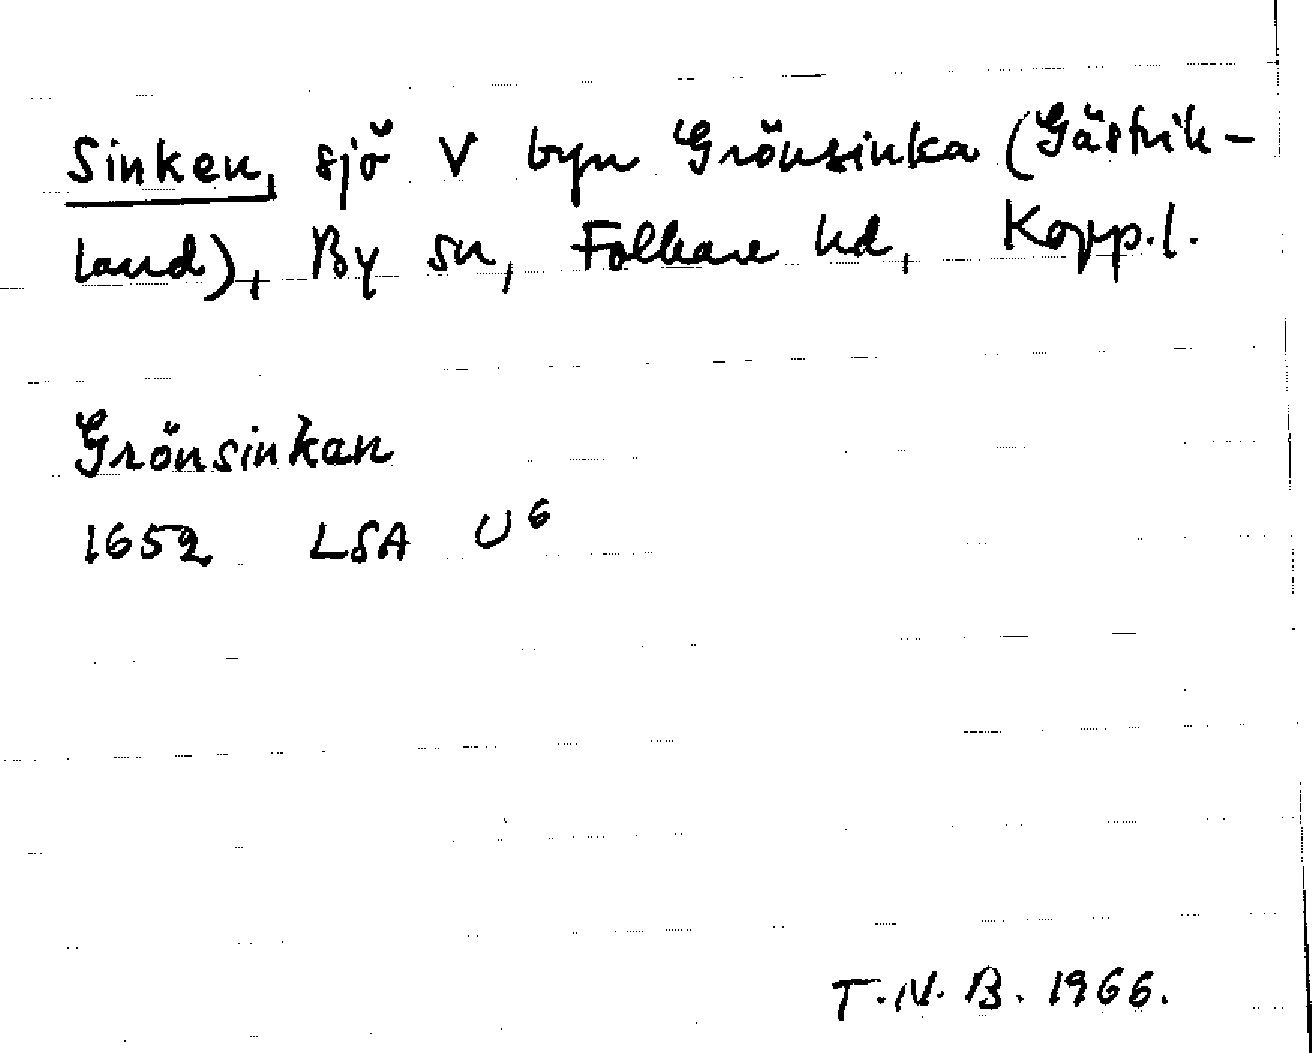 Sinken, sjö V byn Grönsinka (Gästrik-
land), By sn, Folkare hd, Kopp.l.
Grönsinkan
1652 LSA U6
T.N.B. 1966.